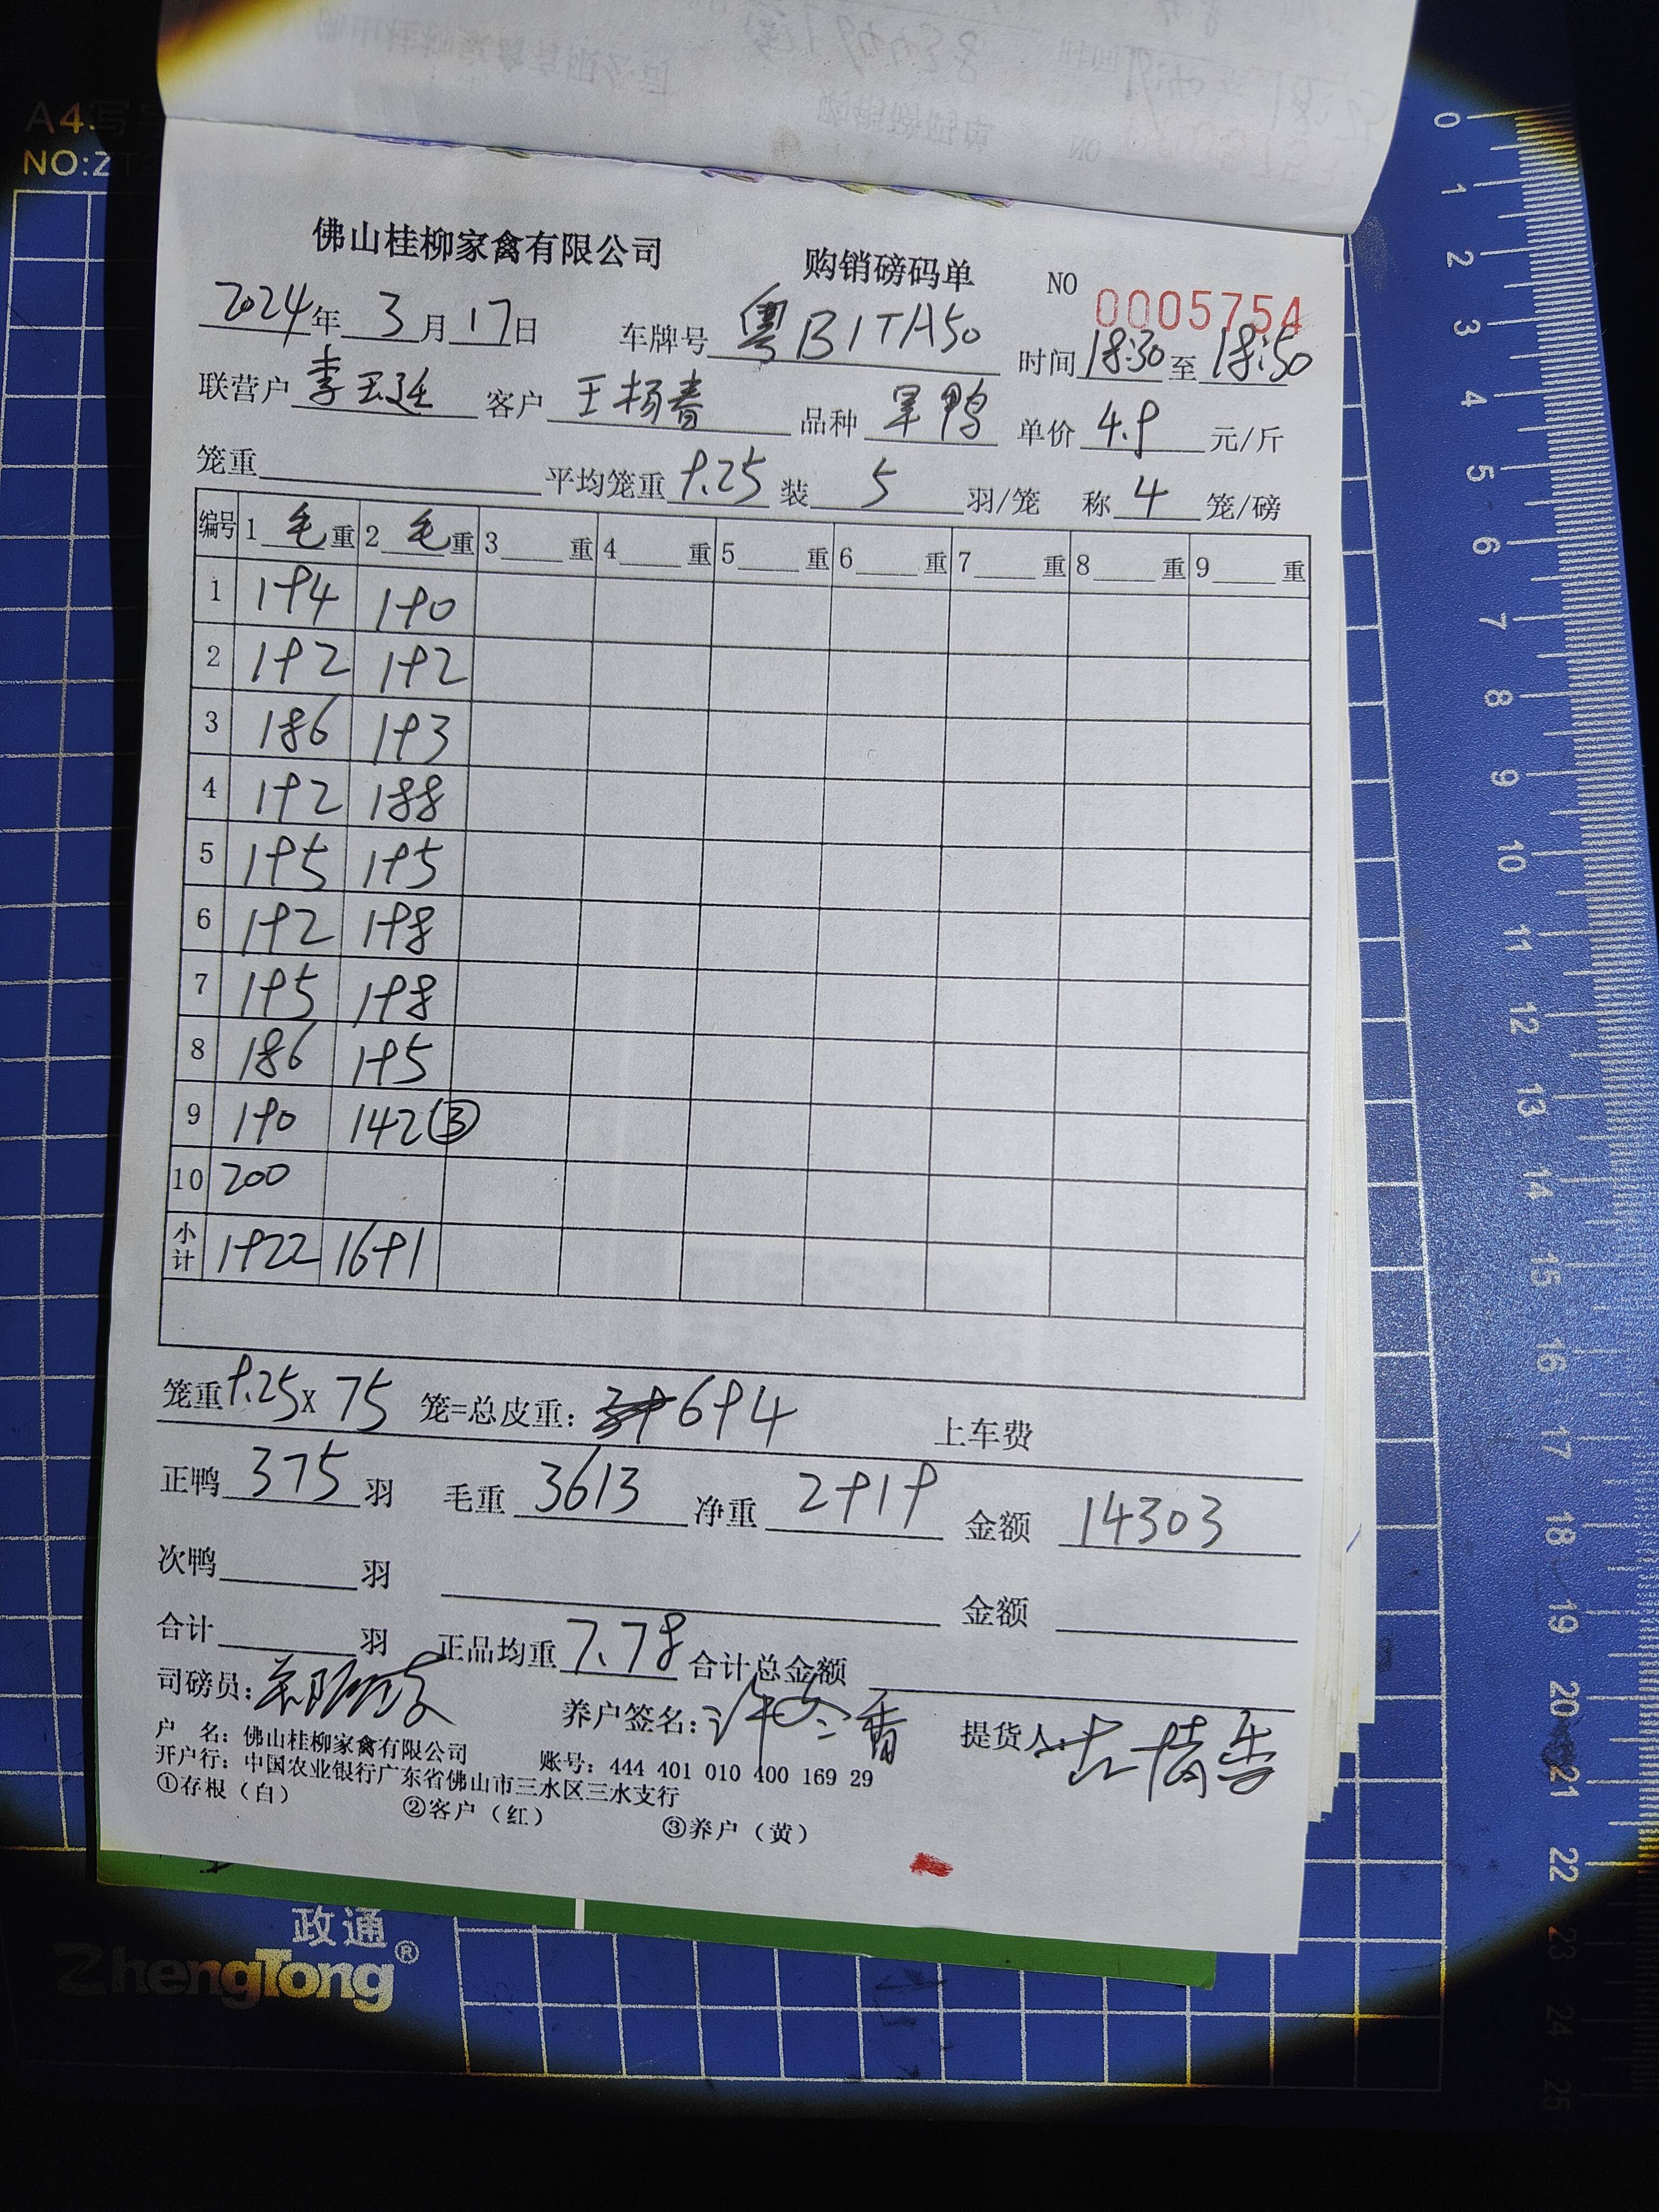 A4写
NO:ZT2
佛山桂柳家禽有限公司 购销磅码单 NO 0005754
2024年 3月 17日 车牌号 粤B1TA50 时间 18:30 至 18:50
联营户 李玉廷 客户 王扬春 品种 旱鸭 单价 4.9 元/斤
笼重 平均笼重 9.25 装 5 羽/笼 称 4 笼/磅
编号 1 毛 重 2 毛 重 3 重 4 重 5 重 6 重 7 重 8 重 9 重
1 194 190
2 192 192
3 186 193
4 192 188
5 195 195
6 192 198
7 195 198
8 186 195
9 190 142(3)
10 200
小计 1922 1691
笼重 9.25 x 75 笼=总皮重: 694 上车费
正鸭 375 羽 毛重 3613 净重 2919 金额 14303
次鸭 羽 金额
合计 羽 正品均重 7.78 合计总金额
司磅员: 养户签名: 提货人:
户 名: 佛山桂柳家禽有限公司 账号: 444 401 010 400 169 29
开户行: 中国农业银行广东省佛山市三水区三水支行
①存根(白) ②客户(红) ③养户(黄)
政通®
ZhengTong
0
1
2
3
4
5
6
7
8
9
10
11
12
13
14
15
16
17
18
19
20
21
22
23
24
25